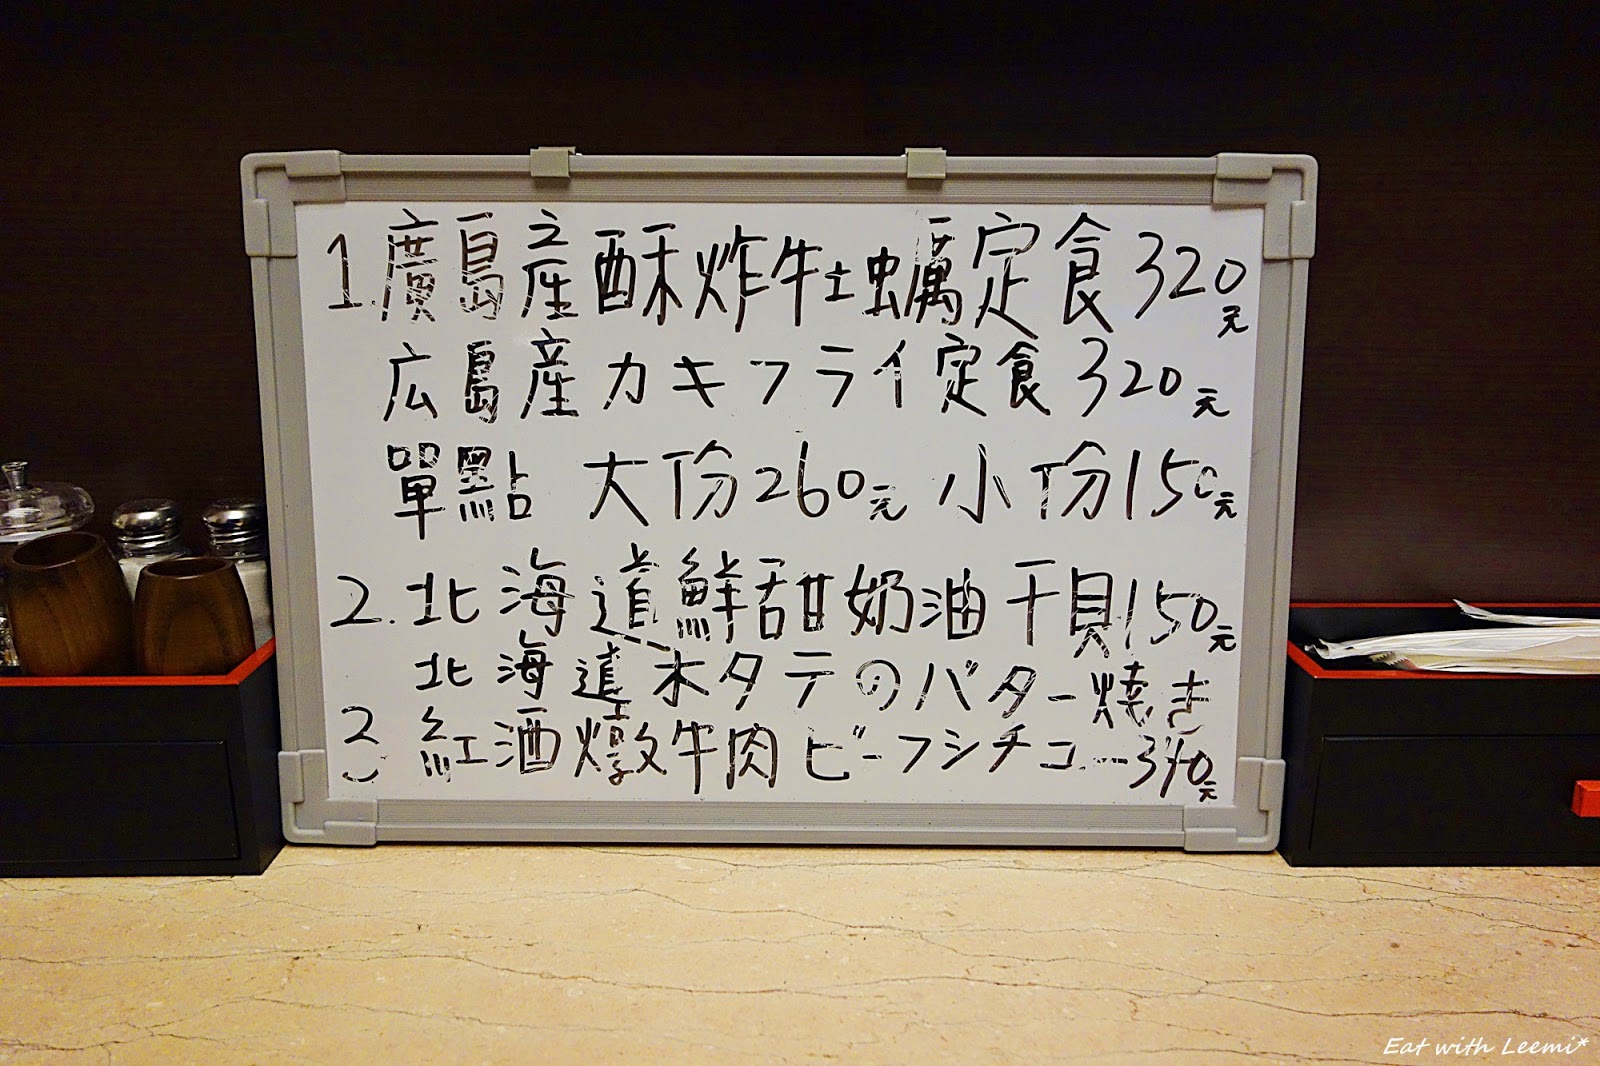 1.廣島産酥炸牡蠣定食320元
広島産カキフライ定食320元
單點 大份260元 小份150元
2.北海道鮮甜奶油干貝150元
北海道ホタテのバター焼き
3 紅酒燉牛肉ビーフシチュー 元
Eat with Leemi*